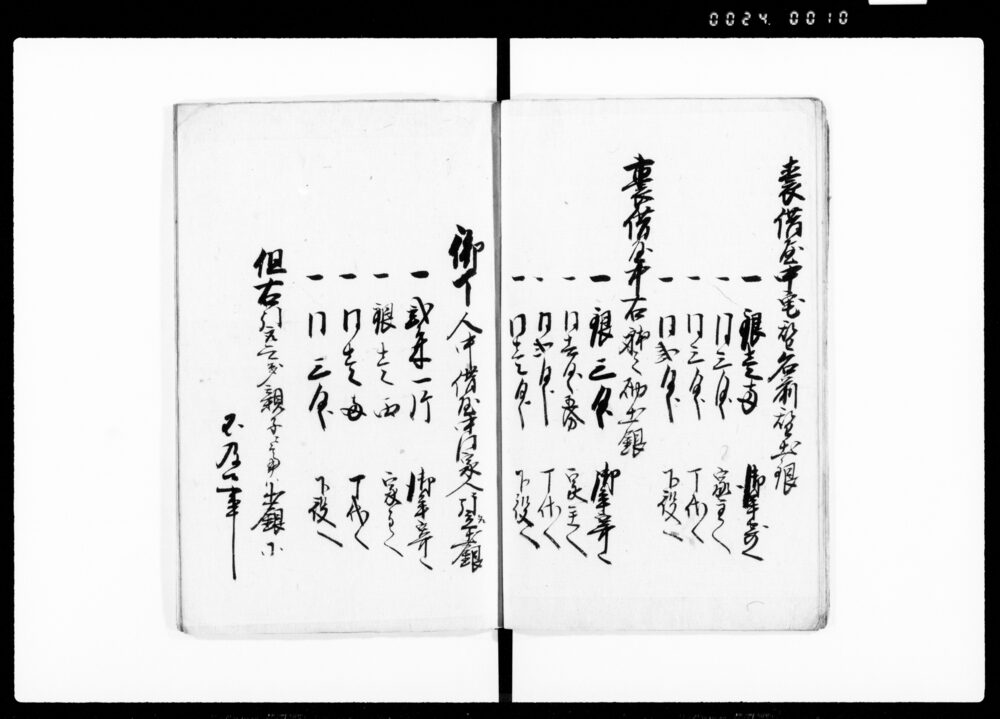 0024. 0010
裏借屋中宅替名前替出銀
一 銀壱両 御年寄へ
一 同三匁 家主へ
一 同三匁 丁代へ
一 同弐匁 下役へ
裏借屋中右 出銀
一 銀三匁 御年寄へ
一 同壱匁五分 家主へ
一 同弐匁 丁代へ
一 同壱匁 下役へ
御丁人中借屋中同家人 出銀
一 弐朱一片 御年寄へ
一 銀壱両 家主へ
一 同壱両 丁代へ
一 同三匁 下役へ
但右 親子 出銀ニ
不及候事